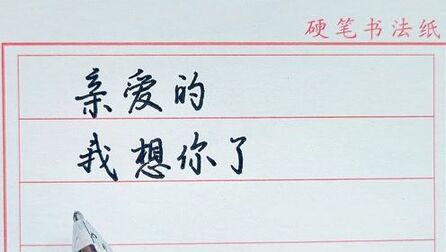 硬笔书法纸
亲爱的
我想你了